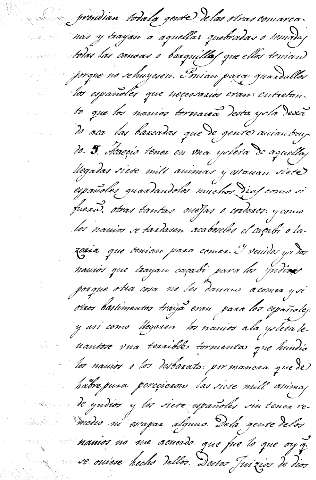 prendian toda la gente de las otras comarca-
nas y trayan a aquellas quebradas o
todas las canoas o barquillas que ellos tenian
porque no se huyesen. Tenian para guardallos
los españoles que necesarios eran entretan-
to que los navios tornavan desta ysla dexan-
do aca las barcadas que de gente avian tray-
do. Acaecio tener en una ysleta de aquellas
llegadas siete mill animas y estavan siete
españoles guardandolos muchos dias como si
fueran otras tantas ovejas o corderos: y como
los navios se tardasen acaboseles el caçabi o la
que tenian para comer. E venidos ya dos
navios que trayan caçabi para los yndios
porque otra cosa no les davan a comer y si
otros bastimentos trayan eran para los españoles
y asi como llegaron los navios a la ysleta le-
vantose una terrible tormenta que hundio
los navios o los desbarato: por manera que de
hambre pura perecieron las siete mill animas
de yndios y los siete españoles sin tener re-
medio ni escapar alguno. De la gente de los
navios no me acuerdo que fue lo que oy q.
se oviese hecho dellos. Destos Juizios de dios